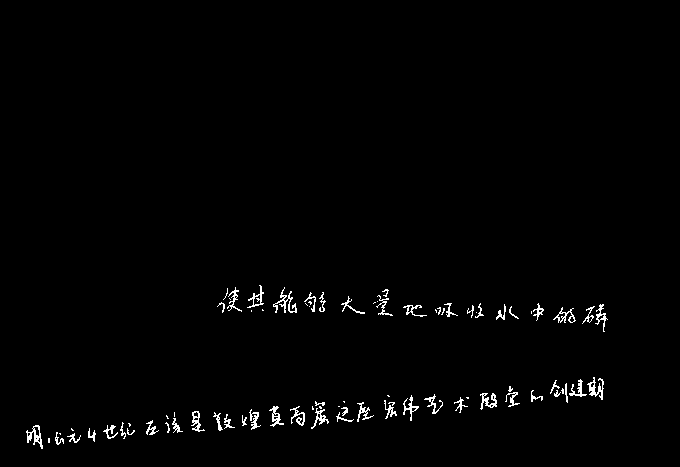 使其能够大量地吸收水中的磷
明,公元4世纪应该是敦煌莫高窟这座宏伟艺术殿堂的创建期